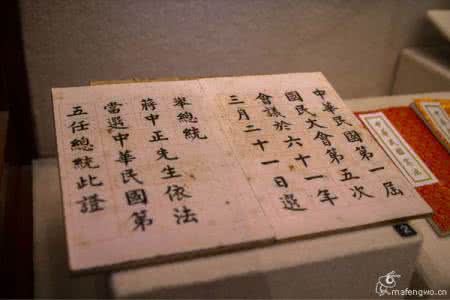 中華民國第一屆
國民大會第五次
會議於六十一年
三月二十一日選
舉總統
蔣中正先生依法
當選中華民國第
五任總統此證
2
mafengwo.cn